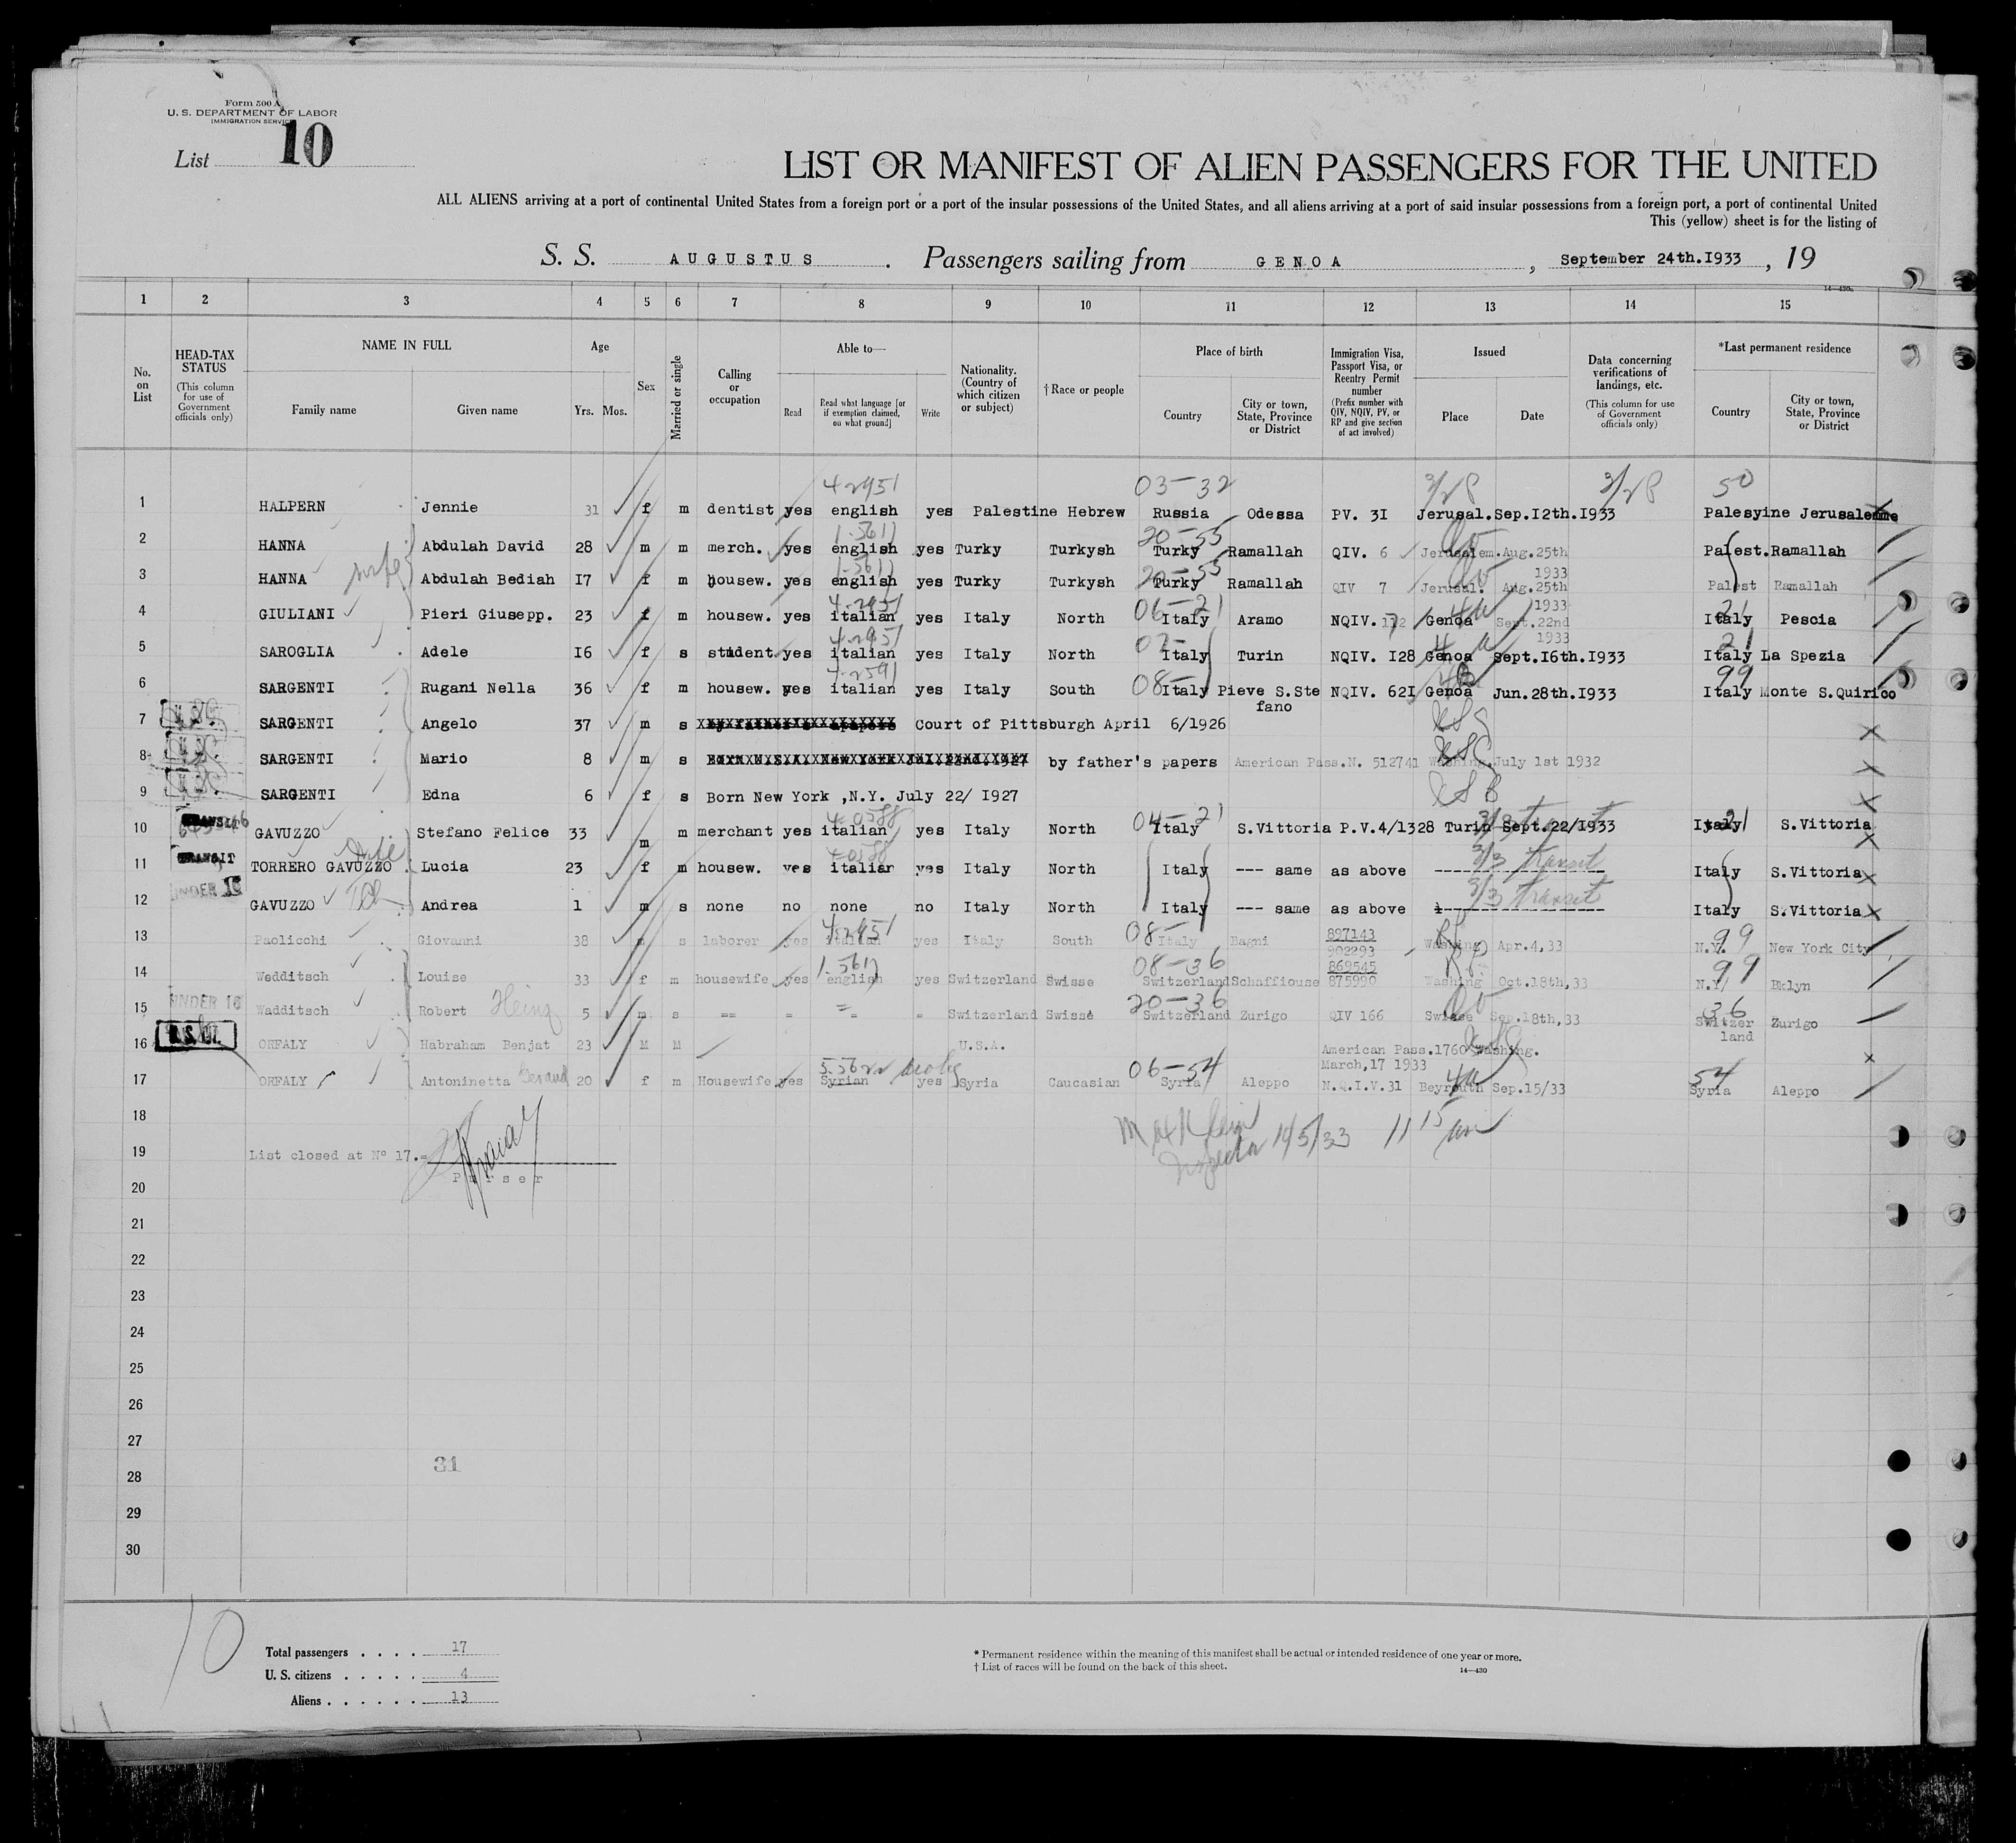 Form 500 A
U. S. DEPARTMENT OF LABOR
IMMIGRATION SERVICE
List 10
LIST OR MANIFEST OF ALIEN PASSENGERS FOR THE UNITED
ALL ALIENS arriving at a port of continental United States from a foreign port or a port of the insular possessions of the United States, and all aliens arriving at a port of said insular possessions from a foreign port, a port of continental United
This (yellow) sheet is for the listing of
S. S. AUGUSTUS. Passengers sailing from GENOA, September 24th.I933, 19
14—430
1 2 3 4 5 6 7 8 9 10 11 12 13 14 15
No. on List
HEAD-TAX STATUS (This column for use of Government officials only)
NAME IN FULL
Family name
Given name
Age
Yrs. Mos.
Sex
Married or single
Calling or occupation
Able to—
Read
Read what language [or if exemption claimed, on what ground]
Write
Nationality. (Country of which citizen or subject)
† Race or people
Place of birth
Country
City or town, State, Province or District
Immigration Visa, Passport Visa, or Reentry Permit number (Prefix number with QIV, NQIV, PV, or RP and give section of act involved)
Issued
Place
Date
Data concerning verifications of landings, etc. (This column for use of Government officials only)
*Last permanent residence
Country
City or town, State, Province or District
4-2951 03-32 3/28 3/28 50
1 HALPERN Jennie 31 f m dentist yes english yes Palestine Hebrew Russia Odessa PV. 3I Jerusal.Sep.I2th.I933 Palesyine Jerusalemme
1-5611 20-55
2 HANNA Abdulah David 28 m m merch. yes english yes Turky Turkysh Turky Ramallah QIV. 6 Jerusalem.Aug.25th 1933 Palest.Ramallah
wife 1-5611 20-55
3 HANNA Abdulah Bediah I7 f m housew. yes english yes Turky Turkysh Turky Ramallah QIV 7 Jerusal. Aug.25th 1933 Palest Ramallah
4-2951 06-21 4a 21
4 GIULIANI Pieri Giusepp. 23 f m housew. yes italian yes Italy North Italy Aramo NQIV.172 Genoa Sept.22nd 1933 Italy Pescia
4-2951 21
5 SAROGLIA Adele I6 f s student yes italian yes Italy North Italy Turin NQIV. I28 Genoa Sept.I6th.I933 Italy La Spezia
4-2591 08- 99
6 SARGENTI Rugani Nella 36 f m housew. yes italian yes Italy South Italy Pieve S.Ste fano NQIV. 62I Genoa Jun.28th.I933 Italy Monte S.Quirico
7 SARGENTI Angelo 37 m s Court of Pittsburgh April 6/I926
8 SARGENTI Mario 8 m s by father's papers American Pass.N. 512741 Washing.July 1st 1932
9 SARGENTI Edna 6 f s Born New York ,N.Y. July 22/ I927
TRANSIT 04-21 21
10 GAVUZZO Stefano Felice 33 m m merchant yes italian yes Italy North Italy S.Vittoria P.V.4/I328 Turin Sept.22/I933 Italy S.Vittoria
TRANSIT wife 3/3 transit
11 TORRERO GAVUZZO Lucia 23 f m housew. yes italian yes Italy North Italy --- same as above Italy S.Vittoria
UNDER 16 3/3 transit
12 GAVUZZO Andrea 1 m s none no none no Italy North Italy --- same as above Italy S.Vittoria
4-2951 08- 99
13 Paolicchi Giovanni 38 m s laborer yes italian yes Italy South Italy Bagni 897143 902293 Washing Apr.4,33 N.Y. New York City
1-5611 08-36 99
14 Wedditsch Louise 33 f m housewife yes english yes Switzerland Swisse Switzerland Schaffiouse 869545 875990 Washing Oct.18th,33 N.Y. Bklyn
UNDER 16 20-36 36
15 Wadditsch Robert Heinz 5 m s == = = = Switzerland Swisse Switzerland Zurigo QIV 166 Swisse Sep.18th,33 Switzer land Zurigo
16 ORFALY Habraham Benjat 23 M M U.S.A. American Pass.1760 Washing. March,17 1933
06-54 4a 54
17 ORFALY Antoninetta 20 f m Housewife yes Syrian yes Syria Caucasian Syria Aleppo N.Q.I.V.31 Beyrouth Sep.15/33 Syria Aleppo
18
19 List closed at Nº 17.-
Purser
Inspector 10/5/33 11 15 am
20
21
22
23
24
25
26
27
28
31
29
30
10
Total passengers . . . . 17
U. S. citizens . . . . . 4
Aliens . . . . . . 13
* Permanent residence within the meaning of this manifest shall be actual or intended residence of one year or more.
† List of races will be found on the back of this sheet.
14—430